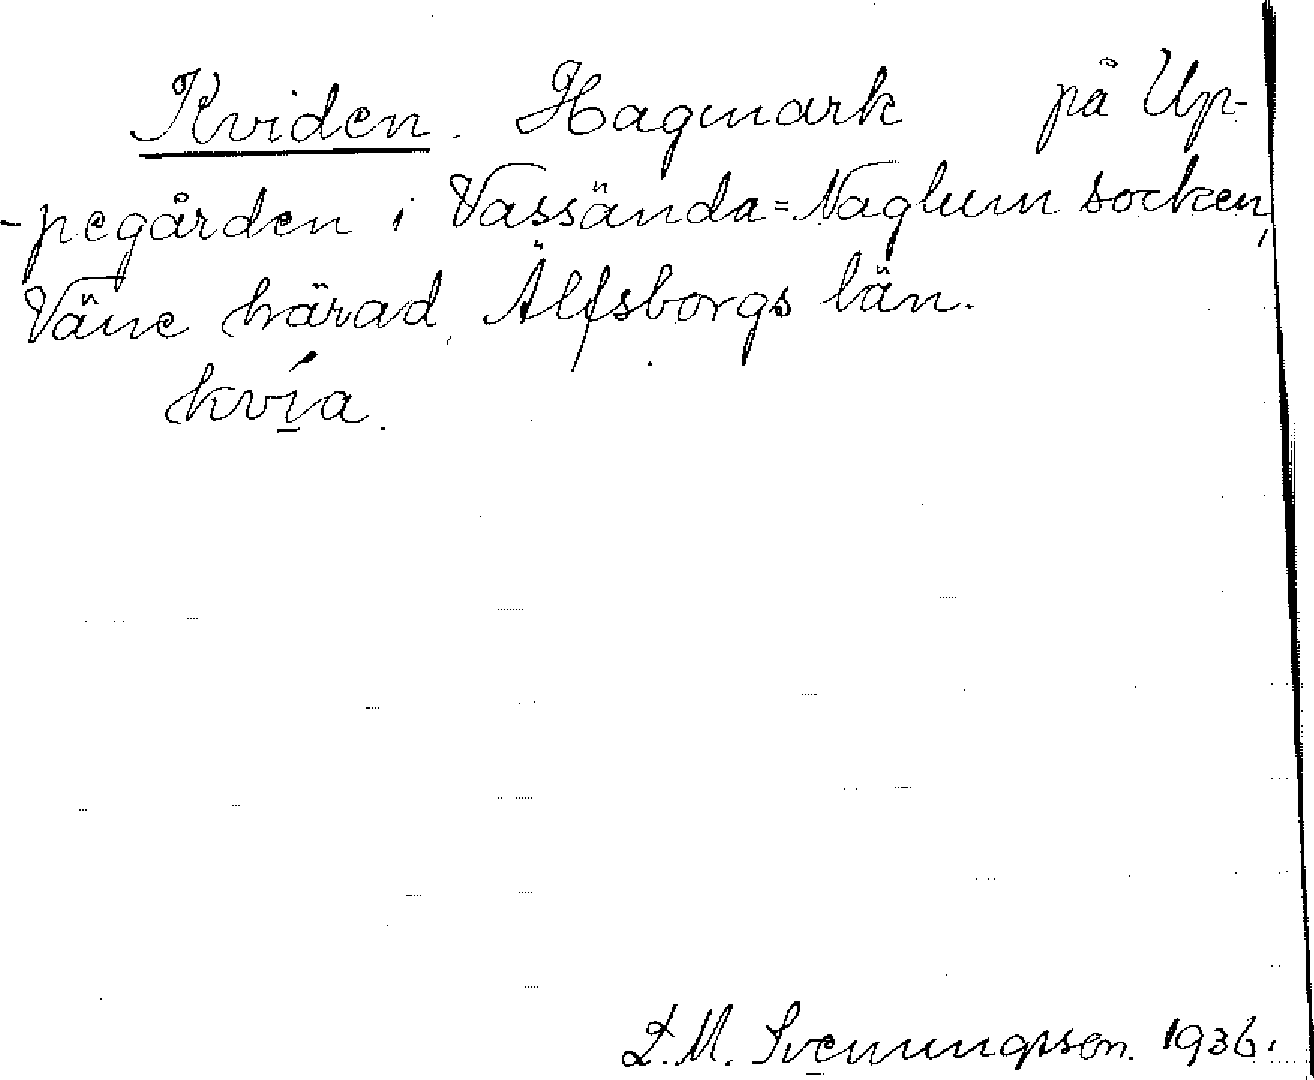 Kviden. Hagmark på Up-
-pegården i Vassända=Naglum socken,
Väne härad, Älfsborgs län.
kvía.
L. M. Svenungsson. 1936.